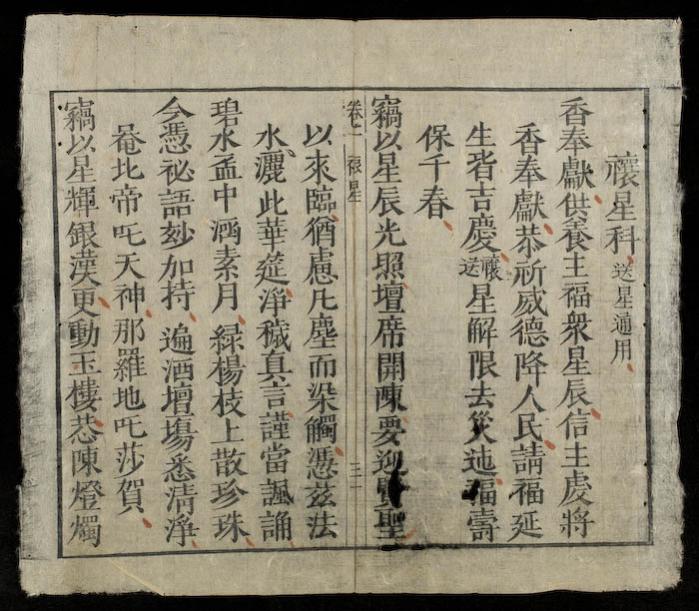 禳星科 送星通用
香奉獻供養主福衆星辰信主䖏將
香奉獻恭祈威德降人民請福延
生皆吉慶禳送星解限去災迍福壽
保千春
竊以星辰光照壇席開陳要迎賢聖
卷一 禳星 三一
以來臨猶慮凡塵而染觸憑兹法
水灑此華筵淨穢真言謹當諷誦
碧水盂中涵素月緑楊枝上散珍珠
今憑祕語玅加持遍洒壇塲悉清淨
唵比帝吒天神那羅地吒莎賀
竊以星輝銀漢更動玉樓恭陳燈燭